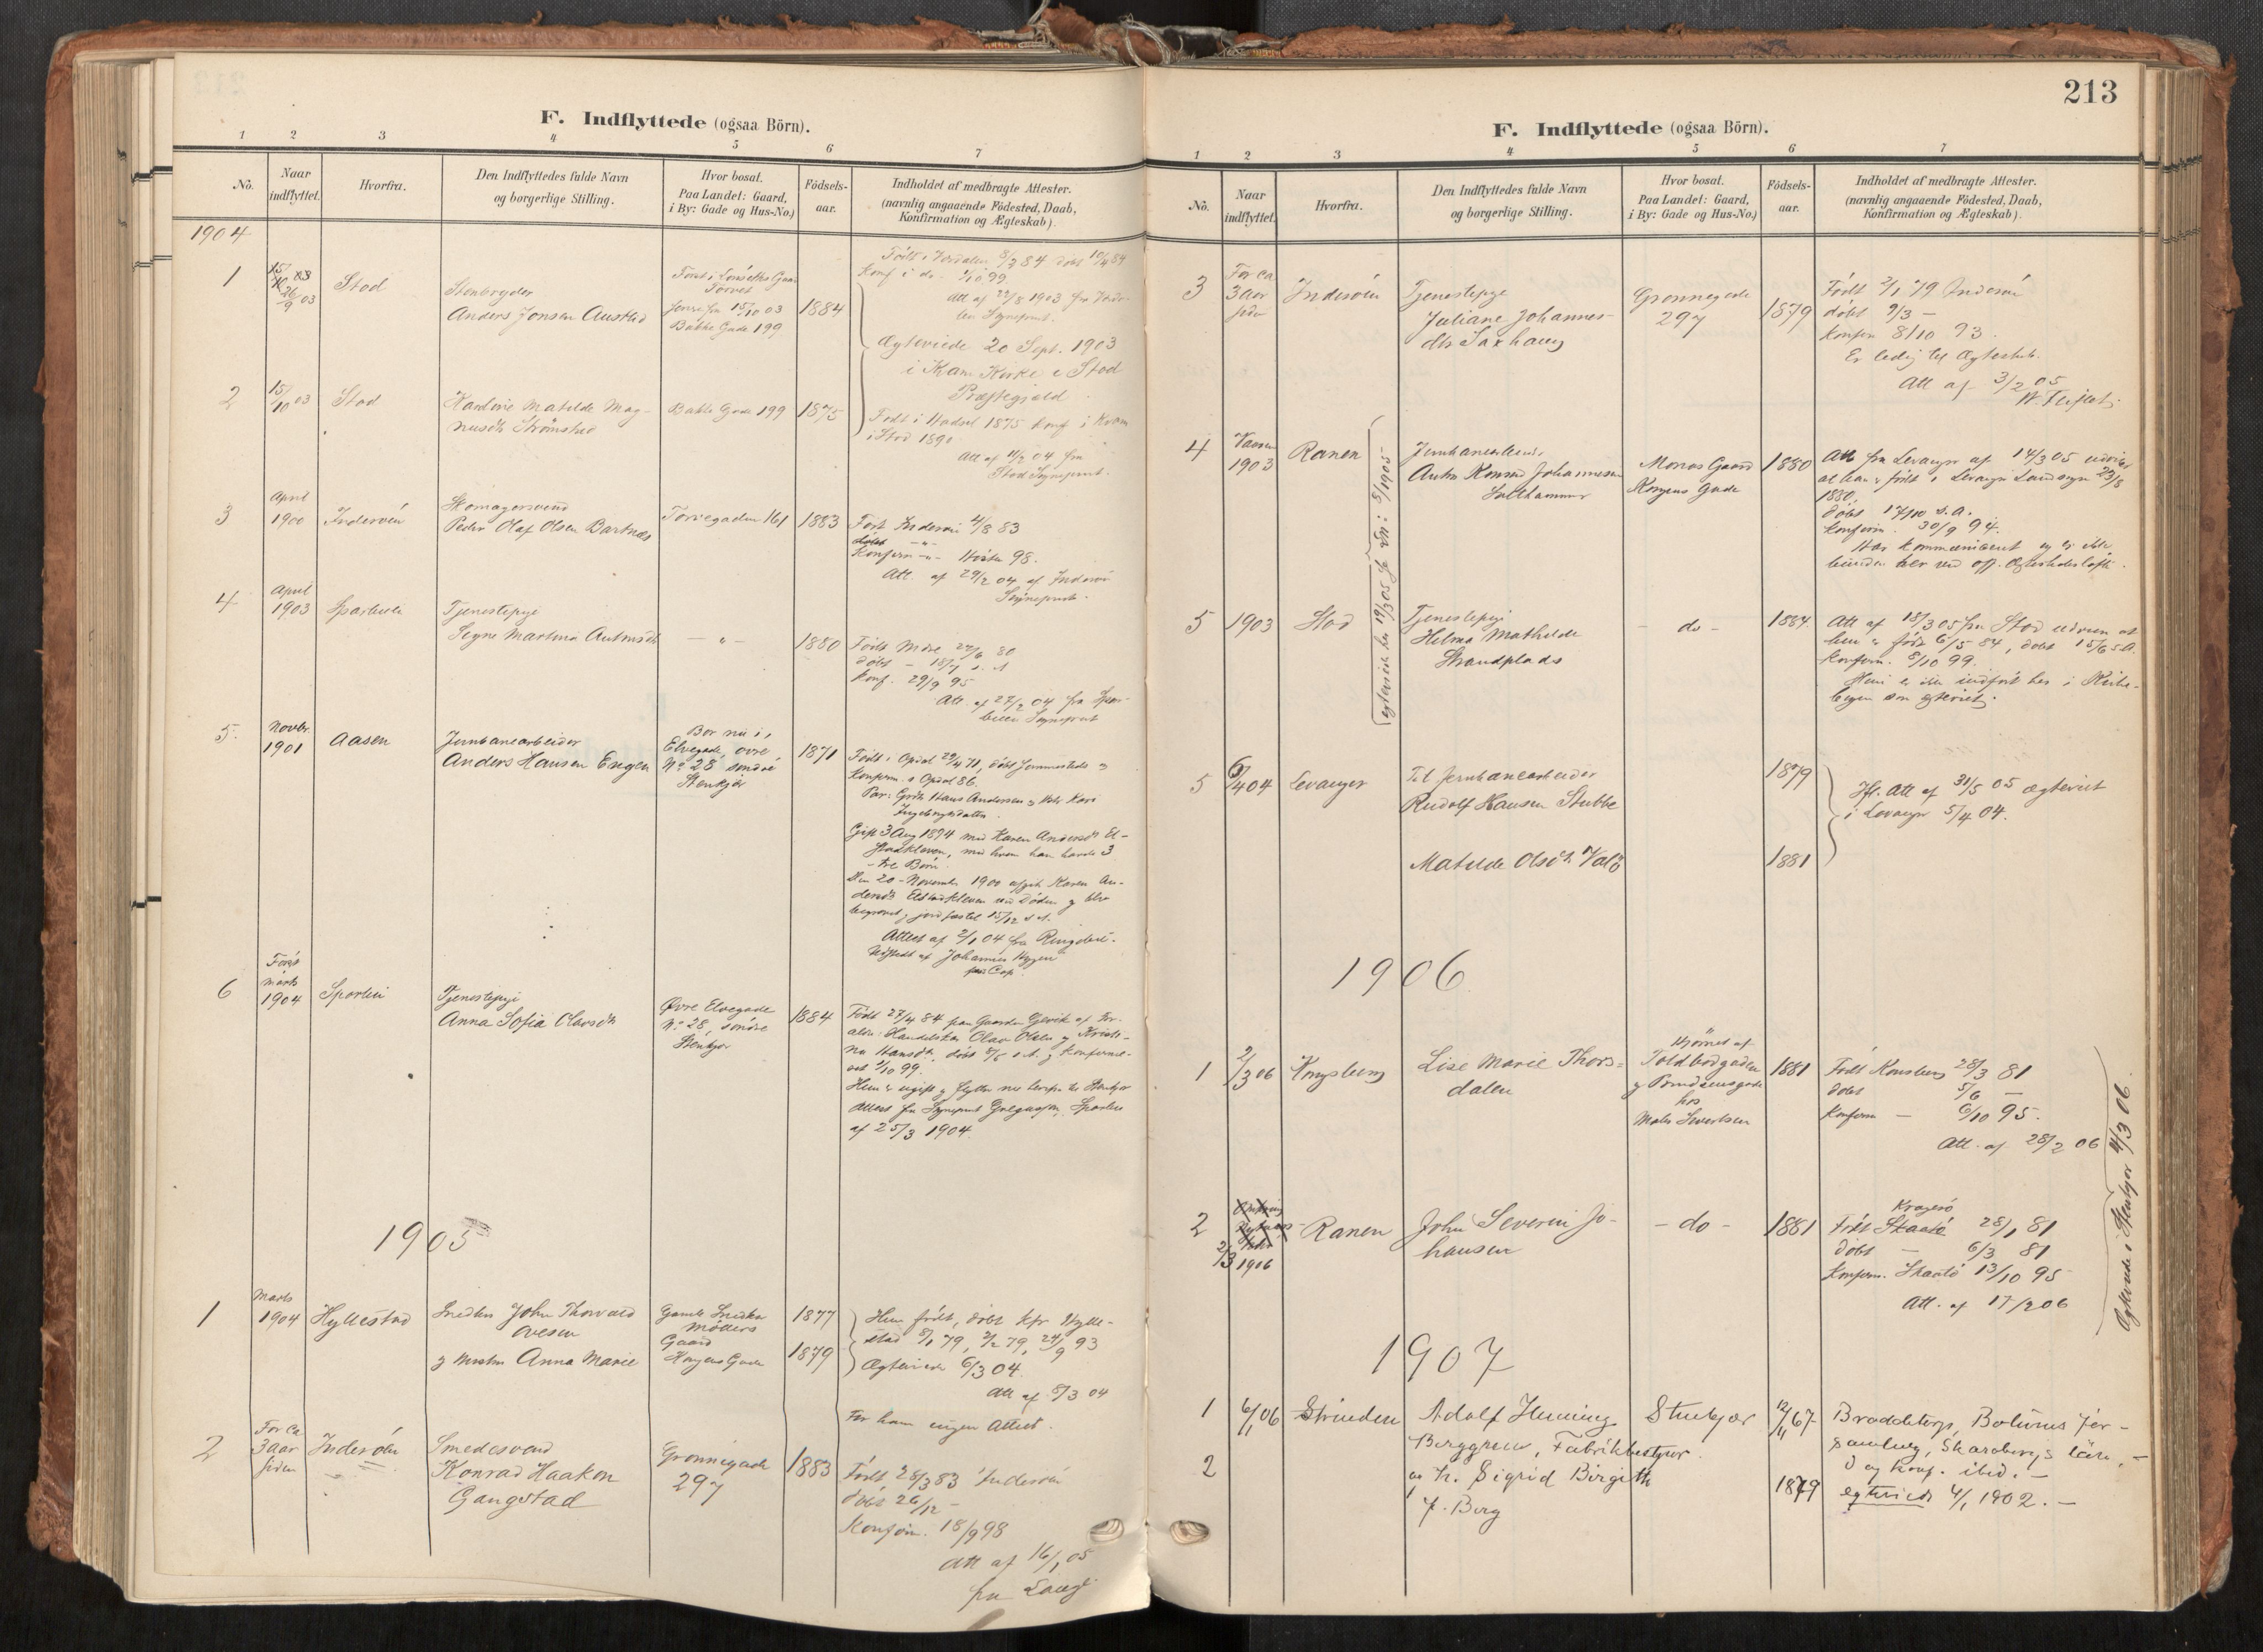 F. Indflyttede (ogsaa Börn).
1 2 3 4 5 6 7
No.
Naar
indflyttet.
Hvorfra.
Den Indflyttedes fulde Navn
og borgerlige Stilling.
Hvor bosat.
Paa Landet: Gaard,
i By: Gade og Hus-No.)
Födsels-
aar.
Indholdet af medbragte Attester.
(navnlig angaaende Födested, Daab,
Konfirmation og Ægteskab).
1904
1
26/9 03
Stod
Stenbryder
Anders Jonsen Austad
Torvet
15/10 03
Bakke Gade 199
1884
8/3 84 döbt 10/4 84
Konf i do. 1/10 99
Att af 22/8 1903 fra
Ægteviede 20 Sept. 1903
i Kvam Kirke i Stod
Præstegjeld
2
15/10 03
Stod
Karoline Matilde Mag-
nusdtr Strömstad
Bakke Gade 199
1875
Födt i Hadsel 1875 Konf i Kvam
i Stod 1890
Att af 11/2 04 fra
Stod Sogneprest.
3
April
1900
Inderöen
Skomagersvend
Peder Olaf Olsen Bartnes
Torvegaden 161
1883
Födt Inderöi 4/8 83
döbt -"-
Konfirm -"- Hösten 98.
Att. af 29/2 04 af Inderöi
Sogneprest.
4
April
1903
Sparbuen
Tjenestepige
Signe Martina Antonsdtr
- " -
1880
Födt Mære 22/6 80
döbt - 18/7 s. A
Konf. 29/9 95
Att. af 27/2 04 fra Spar-
buen Sogneprest
5.
Novbr.
1901
Aasen
Jernbanearbeider
Anders Hansen Engen
Bor nu i
Elvegade, övre
No 28 söndre
Stenkjær
1871
Födt i Opdal 29/4 71, döbt hjemmedöbt og
Konfirm. i Opdal 86.
Par: Grdbr Hans Andersen og Hstr Kari
Ingebrigtsdatter.
Gift 3 Aug 1894 med Karen Andersdtr El-
stadkleven, med hvem han havde 3
- tre Börn.
Den 20 - November 1900 afgik Karen An-
dersdtr Elstadkleven ved Döden og blev
begravet og jordfæstet 15/12 s. A.
Attest af 2/1 04 fra Ringebu.
Udstedt af Johannes Hygen
pers Cap.
6
Först
i Marts
1904
Sparbu
Tjenestepige
Anna Sofia Olausdtr
Övre Elvegade
No 28, söndre
Stenkjær
1884
Födt 27/4 84 paa Gaarden Gjevik af For-
ældre: Handelskar Olav Olsen og Kristi-
na Hansdtr, döbt 8/6 s. A. og konfirme-
ret 1/10 99.
Hun er ugift og flytter nu herfra til Stenkjær
Attest fra Sogneprest Gregussen, Sparbu
af 25/3 1904.
1905
1
Marts
1904
Hyllestad
Smeden John Thorvald
Ovesen
og Hustru Anna Marie
Gamle Snedker
Möllers
Gaard
Kongens Gade
1877
1879
Hun födt, döbt kfr. Hylle-
stad 8/1 79, 2/2 79, 24/9 93
Ægteviede 6/3 04.
Att af 8/3 04
For ham ingen Attest.
2
For ca
3 Aar
siden
Inderöen
Smedesvend
Konrad Haakon
Gangstad
Grönnegade
297
1883
Födt 28/3 83 Inderöen
Döbt 26/12 -
Konfirm. 18/9 98
Att af 16/1 05
fra
213
F. Indflyttede (ogsaa Börn).
1 2 3 4 5 6 7
No.
Naar
indflyttet.
Hvorfra.
Den Indflyttedes fulde Navn
og borgerlige Stilling.
Hvor bosat.
Paa Landet: Gaard,
i By: Gade og Hus-No.)
Födsels-
aar.
Indholdet af medbragte Attester.
(navnlig angaaende Födested, Daab,
Konfirmation og Ægteskab).
3
For ca
3 Aar
siden
Inderöen
Tjenestepige
Juliane Johannes-
dtr Saxhaug
Grönnegade
297
1879
Födt 2/1 79 Inderöen
döbt 9/3 -
Konfirm 8/10 93.
Er ledig til Ægteskab.
Att af 3/2 05
4
Vaaren
1903
Ranen
Jernbanearbeider
Anton Konrad Johannesen
Salthammer
Monas Gaard
Kongens Gade
1880
Att fra Levanger af 14/3 05 udviser
at han er födt i Levanger Landsogn 23/8
1880,
döbt 17/10 s. A.
Konfirm. 30/9 94.
Har kommuniceret og er ikke
bunden her ved off. Ægteskabslöfte.
ægteviet her 19/3 05 se No: 5/1905
5
1903
Stod
Tjenestepige
Helma Mathilde
Strandplads
- do -
1884.
Att af 18/3 05 fra Stod udviser at
hun er födt 6/5 84, döbt 15/6 s. A.
Konfirm. 8/10 99.
Hun er ikke indfört her i Kirke-
bogen som ægteviet.
5
6/4 04
Levanger
Jernbanearbeider
Rudolf Hansen Stubbe
1879
Matilde Olsdtr Valö
1881
Ifl. Att af 31/5 05 ægteviet
i Levanger 5/4 04.
1906.
1
2/3 06
Kongsberg
Lise Marie Thors-
dalen
Hjörnet af
Toldbodgaden
og
hos
Maler Sivertsen
1881
Födt Konsberg 28/3 81
döbt 5/6 -
Konfirm - 6/10 95.
Att. af 28/2 06
2
2/3 1906
Ranen
John Severin Jo-
hansen
- do -
1881
Kragerö
Födt Skaatö 28/1 81
döbt - 6/3 81
Konfirm. Skaatö 13/10 95
Att. af 17/2 06
Ægteviede i Stenkjær 4/3 06.
1907
1
6/1 06
Strinden
Adolf Henning
Berggren, Fabrikbestyrer.
Stenkjær
12/11 67
Braddetorp, Botuns För-
samling, Skaraborgs län, -
D og Konf. ibid. -
2
og h. Sigrid Birgith
f. Berg
1879
egteviede 4/1 1902. -